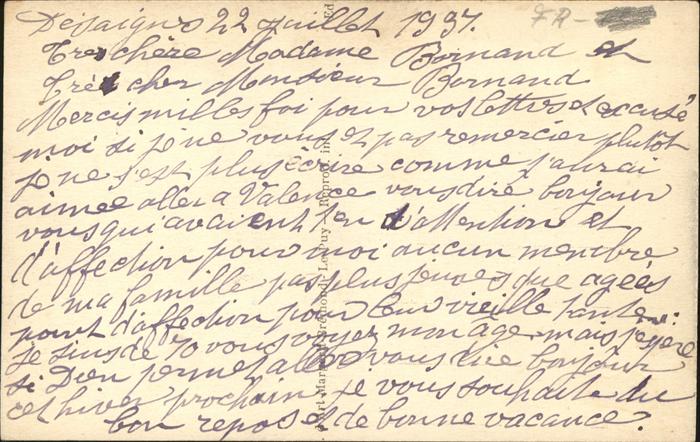 Desaignes 22 juillet 1937.
FR-
Très chère Madame Bornand et
Très cher Monsieur Bornand
Mercis milles foi pour vos lettres et excusé
moi si je ne vous et pas remercier plutôt
je ne s'est plus écrire comme j'aurai
aimée aller a Valence vous dire bonjour
vous qui avaient ten d'attention et
d'affection pour moi aucun membre
de ma famille pas plus jeunes que agées
point d'affection pour leur vieille tante:
je suis de 70 vous voyez mon age mais j'espère
si Dieu permet aller vous dire bonjour
cet hiver prochain je vous souhaite du
bon repos et de bonne vacance?
Le Puy — Reprod. in
Ed